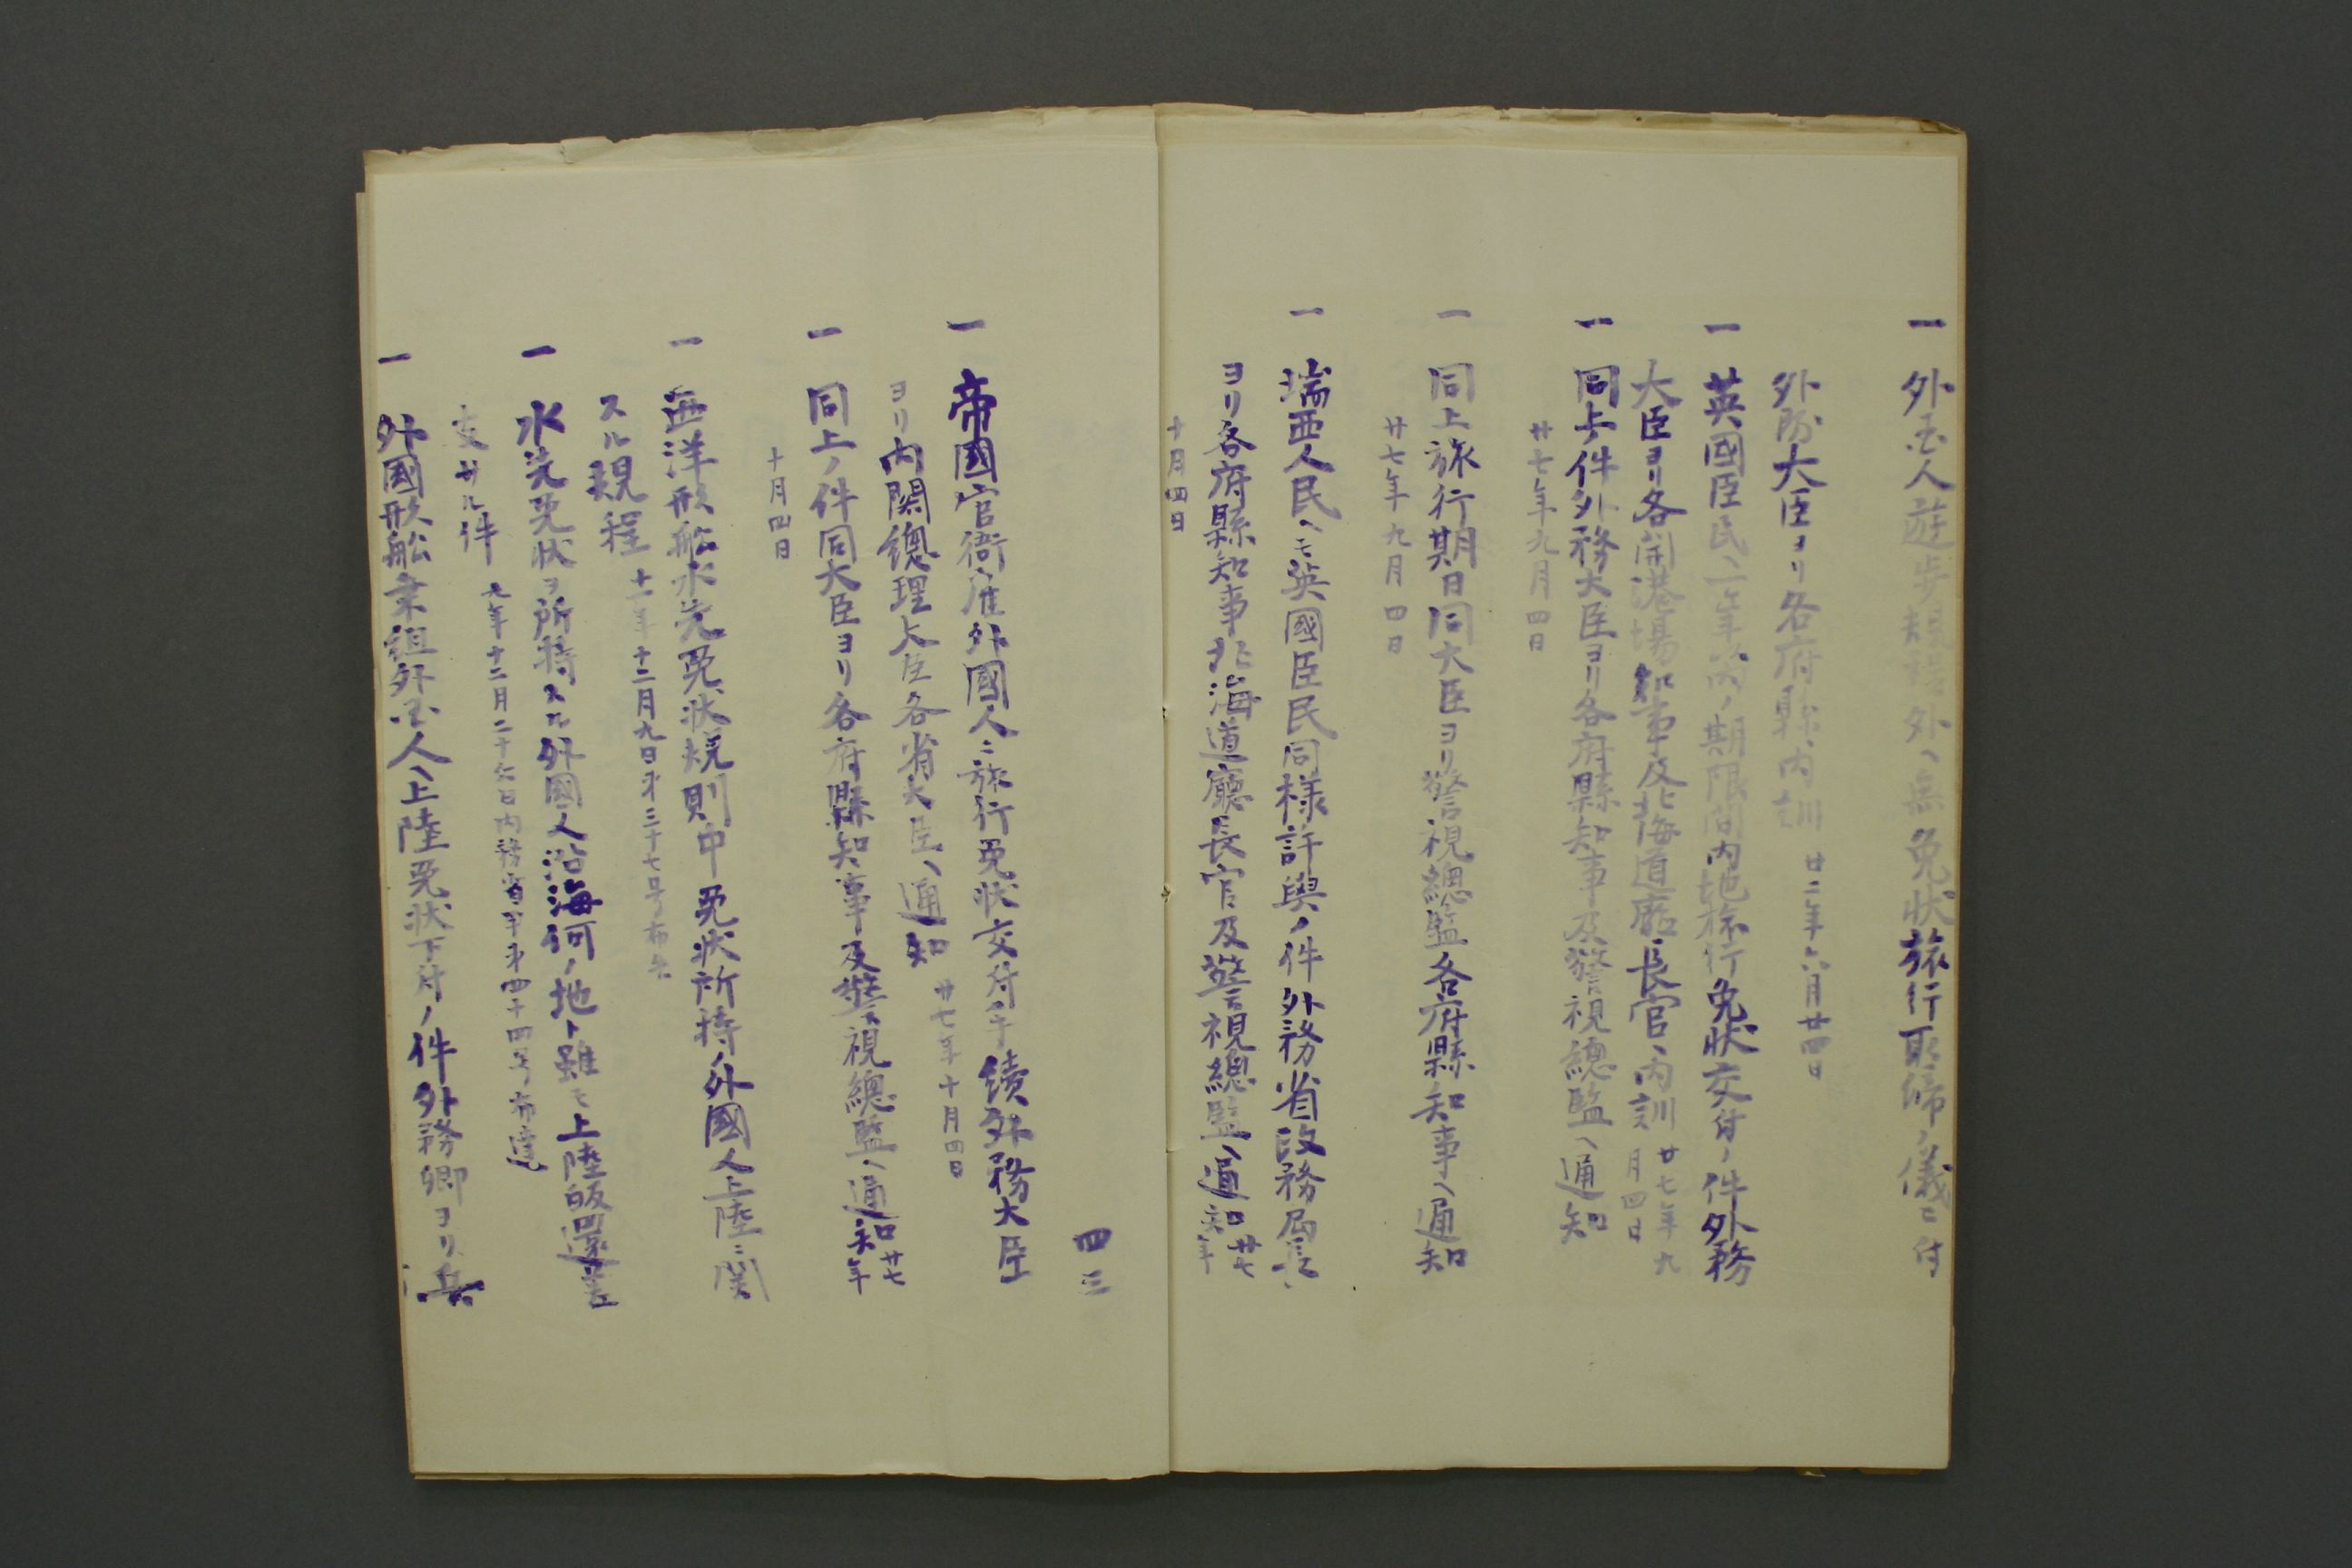 一 外国人遊歩規程外ヘ無免状旅行取締ノ儀ニ付
外務大臣ヨリ各府縣ヘ内訓 廿二年六月廿四日
一 英國臣民ヘ一ケ年内ノ期限間内地旅行免状交付ノ件外務
大臣ヨリ各開港場知事及北海道廳長官ヘ内訓 廿七年九
月四日
一 同上ノ件外務大臣ヨリ各府縣知事及警視總監ヘ通知
廿七年九月四日
一 同上旅行期日同大臣ヨリ警視總監各府縣知事ヘ通知
廿七年九月四日
一 瑞西人民ヘモ英國臣民同様許與ノ件外務省政務局長
ヨリ各府縣知事北海道廳長官及警視總監ヘ通知 廿七
年
十月四日
四三
一 帝國官衙雇外國人ニ旅行免状交付手續外務大臣
ヨリ内閣總理大臣各省大臣ヘ通知 廿七年十月四日
一 同上ノ件同大臣ヨリ各府縣知事及警視總監ヘ通知 廿七
年
十月四日
一 西洋形舩水先免状規則中免状所持ノ外國人上陸ニ関
スル規程 十一年十二月九日第三十七号布告
一 水先免状ヲ所持スル外國人沿海何ノ地ト雖モ上陸皈還差
支ナル件 九年十二月二十八日内務省第四十四号布達
一 外國形舩乗組外国人ヘ上陸免状下付ノ件外務卿ヨリ兵